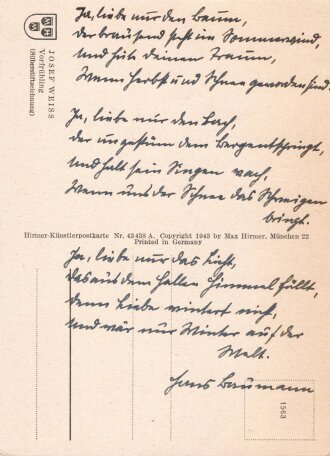 JOSEF WEISS
Vorfrühling
(Silberstiftzeichnung)
Ja, liebe nur den Baum,
der brausend steht im Sommerwind,
und hüte deinen Traum,
Wenn Herbst und Schnee geworden sind.
Ja, liebe nur den Bach,
der ungestüm dem Berg entspringt,
und halt sein Singen wach,
Wenn uns der Schnee das Schweigen
bringt.
Hirmer-Künstlerpostkarte Nr. 43438 A. Copyright 1943 by Max Hirmer, München 22
Printed in Germany
Ja, liebe nur das Licht,
das aus dem hellen Himmel fällt,
denn Liebe wintert nicht,
und wär nur Winter auf der
Welt.
Hans Baumann
1563